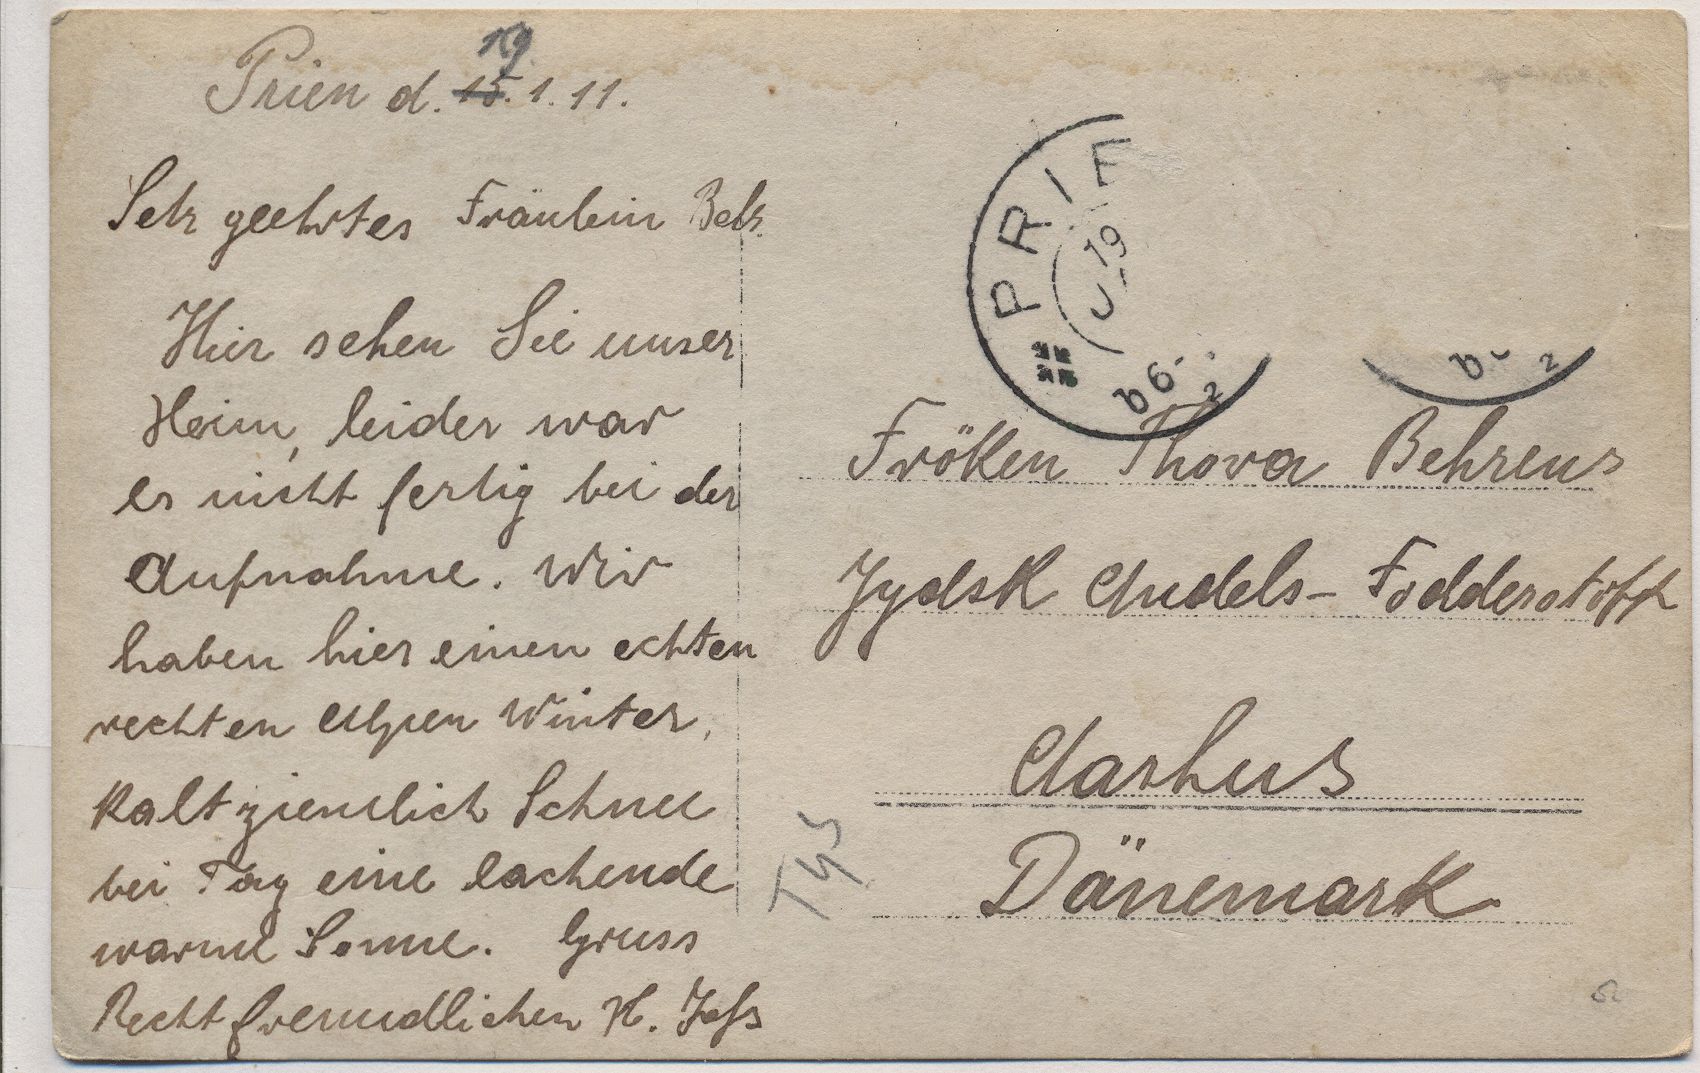 Prien d. 19. 1. 11.
Sehr geehrtes Fräulein
Hier sehen Sie unser
Heim, leider war
es nicht fertig bei der
Aufnahme. Wir
haben hier einen echten
rechten Alpen Winter,
kalt ziemlich Schnee
bei Tag eine lachende
warme Sonne. Gruss
Recht freundlichen H. Jess
PRIE
19
b6-
2
b
2
Fröken Thora Behrens
Jydsk Andels-Fodderstoff
Aarhus
Dänemark
Tys